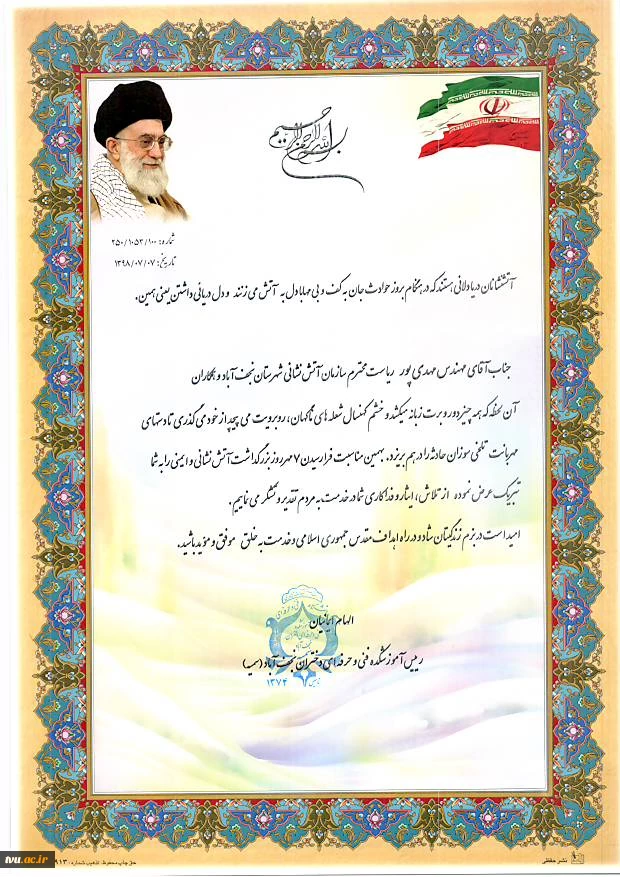 بسم الله الرحمن الرحیم
شماره: ۲۵۰/۱۰۵۳/۱۰۰
تاریخ: ۱۳۹۸/۰۷/۰۷
آتشنشانان دریادلانی هستند که در هنگام بروز حوادث جان به کف و بی مهابا دل به آتش می زنند و دل دریایی داشتن یعنی همین.
جناب آقای مهندس مهدی پور ریاست محترم سازمان آتش نشانی شهرستان نجف آباد و همکاران
آن لحظه که همه چیز دور و برت میکشد و خشم کهنسال شعله های ناگهان، روبرویت می پیچد از خود می گذری تا دستهای
مهربانت تلخی سوزان حادثه را در هم بریزد. بهمین مناسبت فرا رسیدن ۷ مهر روز بزرگداشت آتش نشانی و ایمنی را به شما
تبریک عرض نموده از تلاش، ایثار و فداکاری شما در خدمت به مردم تقدیر و تشکر می نماییم.
امید است در بزم زندگیتان شاد و در راه اهداف مقدس جمهوری اسلامی و خدمت به خلق موفق و موید باشید.
الهام ایرانیان
رییس آموزشکده فنی و حرفه ای دختران نجف آباد (سمیه)
۱۳۷۴
tvu.ac.ir
حق چاپ محفوظ. تذهیب شماره: ۹۱۳
نشر حفظی